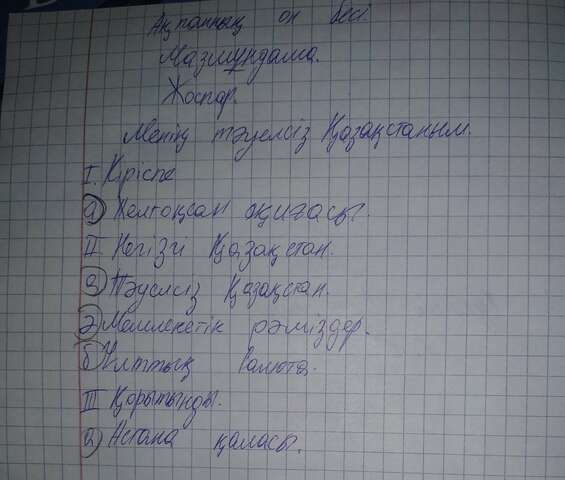 Ақпанның он бесі.
Мазмұндама.
Жоспар.
Менің тәуелсіз Қазақстаным.
I. Кіріспе
а) Желтоқсан оқиғасы.
II Негізгі Қазақстан.
а) Тәуелсіз Қазақстан.
ә) Мемлекеттік рәміздер.
б) Ұлттық валюта.
III Қорытынды.
а) Астана қаласы.